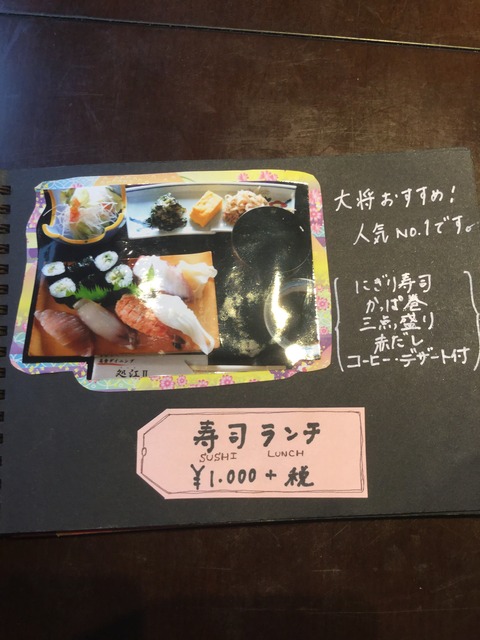 大将おすすめ!
人気 NO.1です。
にぎり寿司
かっぱ巻
三点盛り
赤だし
コーヒー・デザート付
寿司ランチ
SUSHI LUNCH
¥1.000+税